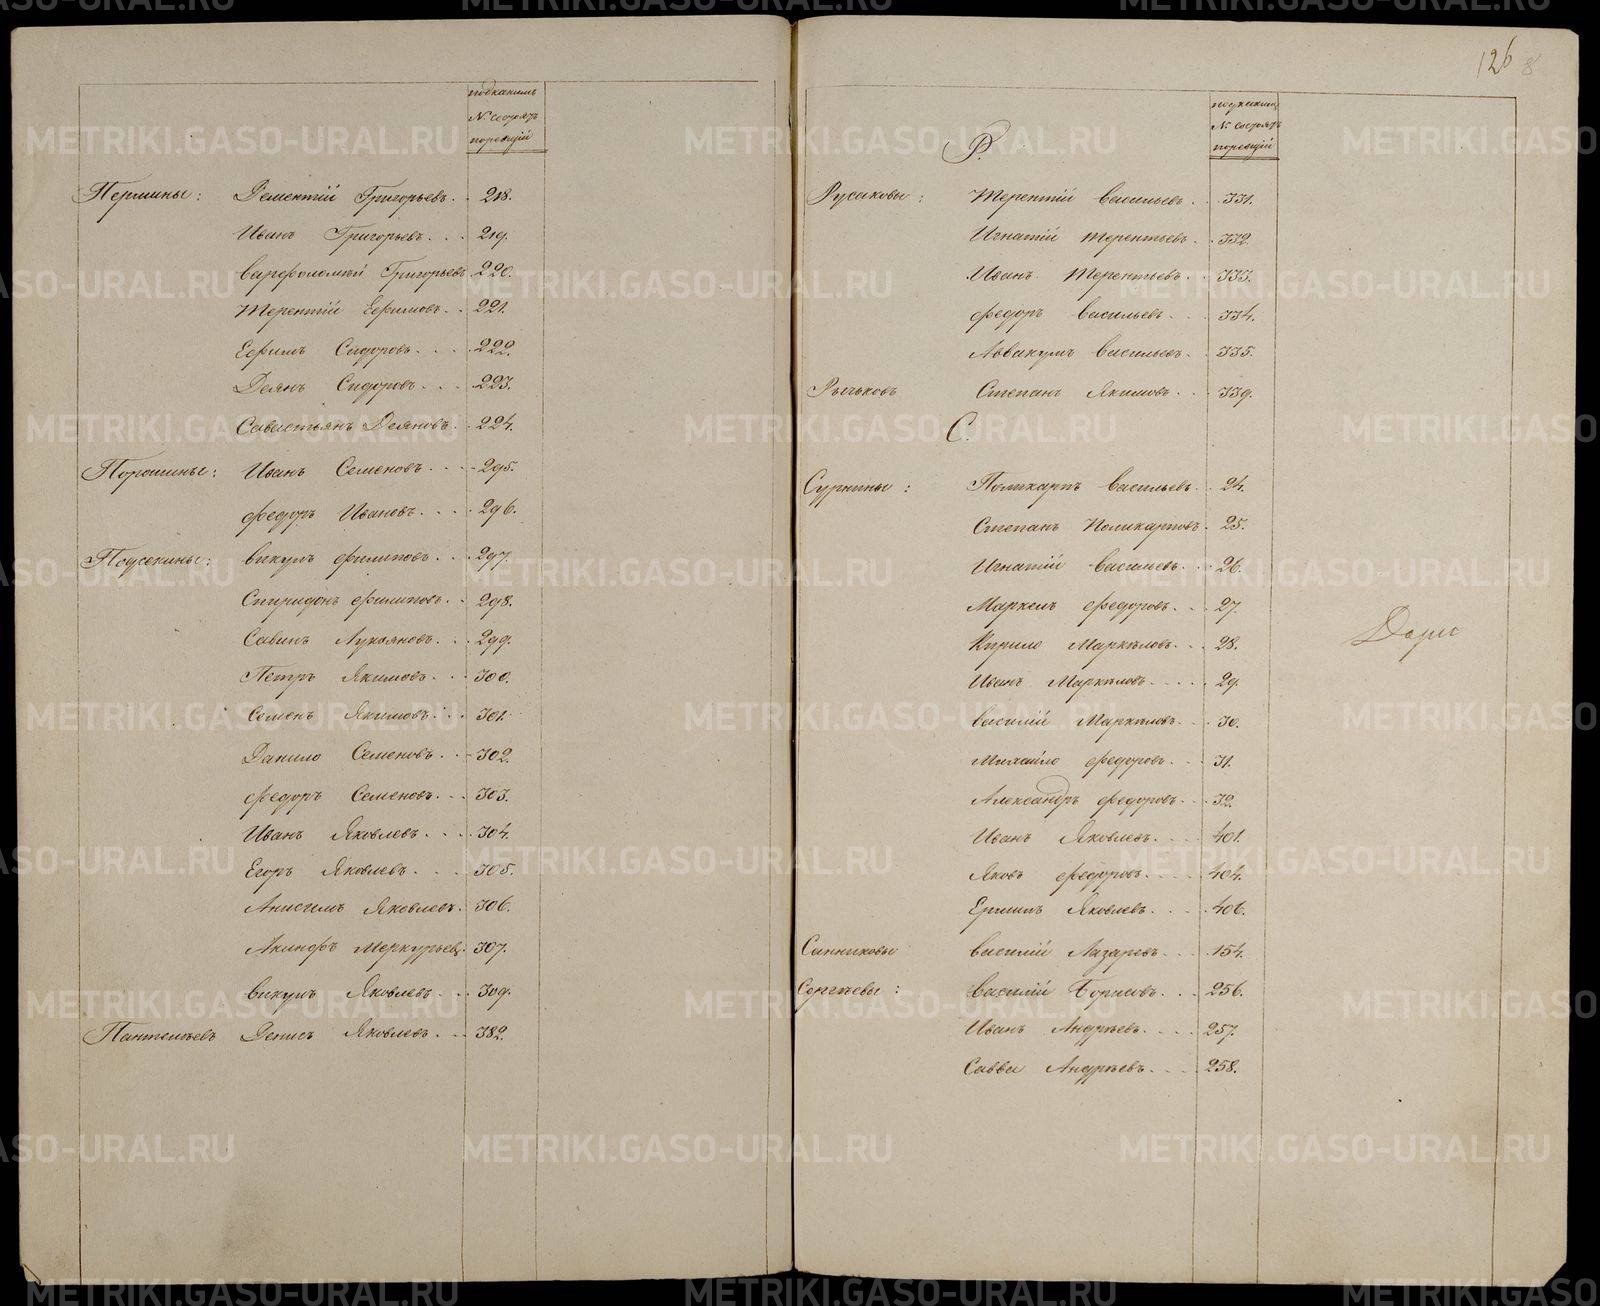 подкакимъ
№ состоятъ
Пермины: Дементій Григорьевъ. . 218.
Иванъ Григорьевъ. . . 219.
Варфоломѣй Григорьевъ. 220.
Терентій Ефимовъ. . 221.
Ефимъ Сидоровъ. . . . 222.
Деянъ Сидоровъ. . . . 223.
Савастьянъ Деяновъ. . 224.
Порошины: Иванъ Семеновъ. . . . 295.
Федоръ Ивановъ. . . . 296.
Подсекины: Викулъ Филиповъ. . . 297.
Спиридонъ Филиповъ. . 298.
Савинъ Лукояновъ. . . 299.
Петръ Якимовъ. . . 300.
Семенъ Якимовъ. . . 301.
Данило Семеновъ. . . 302.
Федоръ Семеновъ. . . 303.
Иванъ Яковлевъ. . . . 304.
Егоръ Яковлевъ. . . . 305.
Анисимъ Яковлевъ. 306.
Акинфъ Меркурьев. 307.
Викулъ Яковлевъ. . . 309.
Пантелѣевъ Денисъ Яковлевъ. . . 382.
126 8
подкаким
№ состоятъ
Р.
Русаковы: Терентій Васильевъ. . . 331.
Игнатій Терентьевъ. . 332.
Иванъ Терентьевъ. . . 333.
Федоръ Васильевъ. . . . 334.
Аввакумъ Васильевъ. . . 335.
Рычковъ Степанъ Якимовъ. . . 339.
С.
Сурнины: Поликарпъ Васильевъ. . 24.
Степанъ Поликарповъ. 25.
Игнатій Васильевъ. . . 26.
Маркелъ Федоровъ. . . 27.
Кирило Маркѣловъ. . . 28.
Иванъ Маркѣловъ. . . . . 29.
Василій Маркѣловъ. . . 30.
Михайло Федоровъ. . . 31.
Александръ Федоровъ. . . 32.
Иванъ Яковлевъ. . . . 401.
Яковъ Федоровъ. . . . . 404.
Ермилъ Яковлевъ. . . . 406.
Санниковы Василій Лазаревъ. . . . 154.
Сергѣевы: Василій Борисовъ. . . 256.
Иванъ Андрѣевъ. . . . 257.
Савва Андрѣевъ. . . . 258.
METRIKI.GASO-URAL.RU